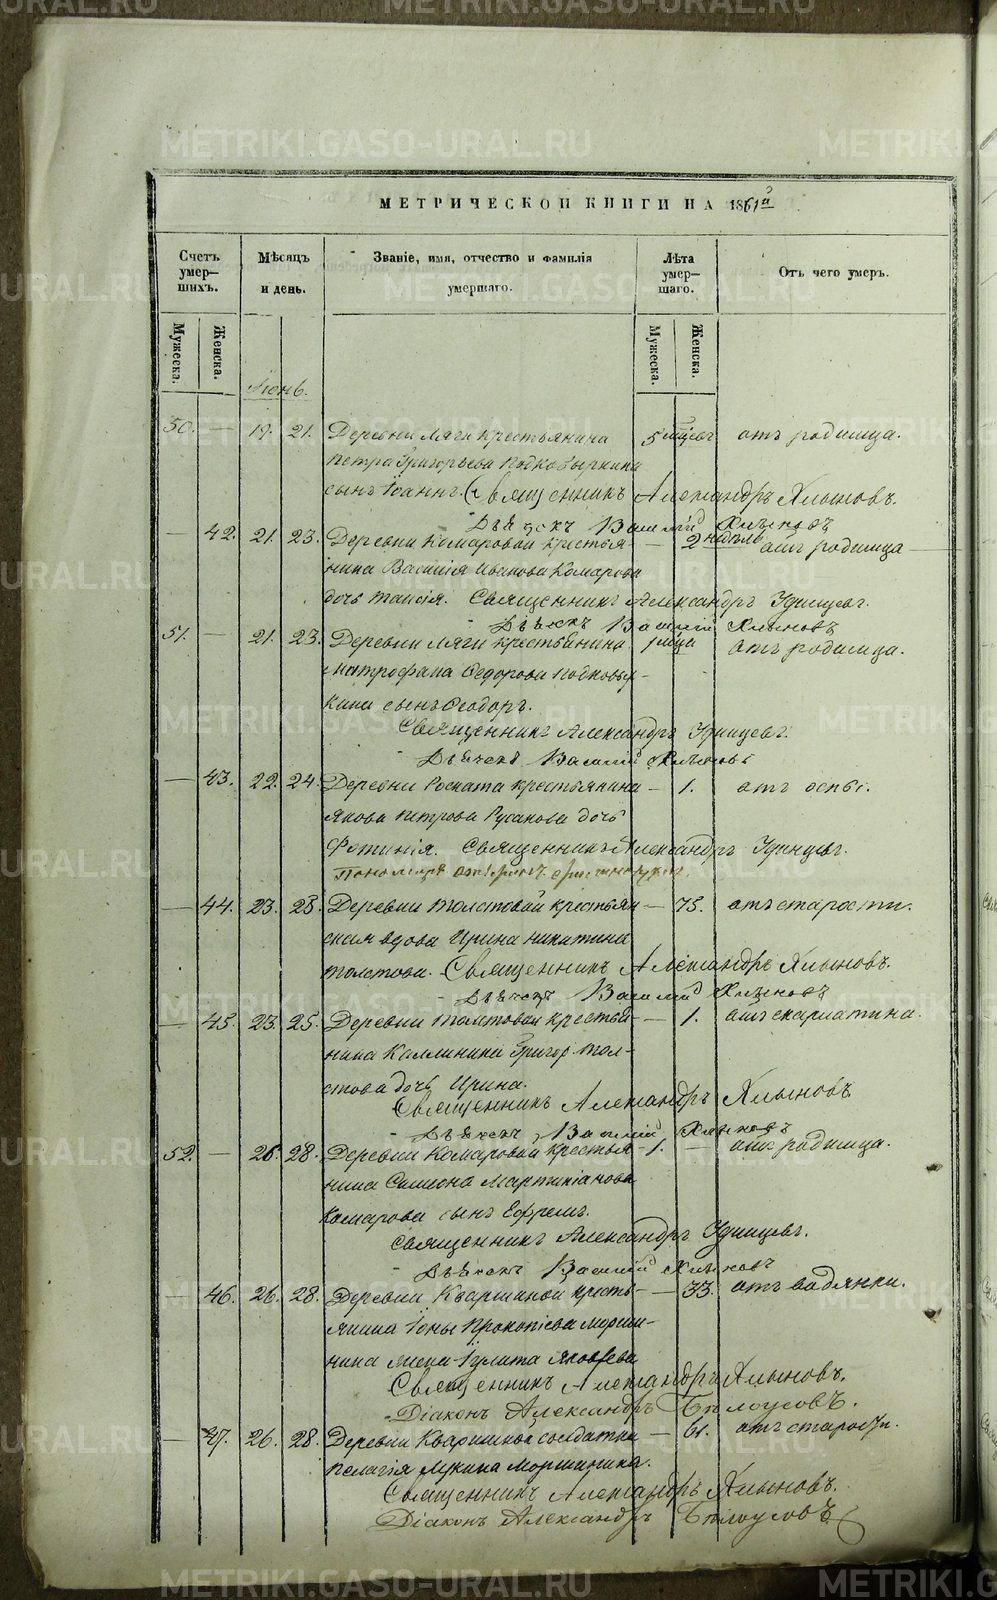 МЕТРИЧЕСКОЙ КНИГИ НА 1861й
Счетъ умер-шихъ. Мѣсяцъ и день. Званіе, имя, отчество и фамилія умершаго. Лѣта умер-шаго. Отъ чего умеръ.
Мужеска. Женска. Мужеска. Женска.
Іюнь.
50. — 19. 21. Деревни Ляги крестьянина 5 отъ родимца.
Петра Григорьева
сынъ Іоаннъ. Священникъ Александръ Хлыновъ.
Дьячекъ Василій Хлыновъ
— 42. 21. 23. Деревни Комаровой крестья- — 2 недѣль отъ родимца
нина Василія Иванова Комарова
дочь Таисія. Священникъ Александръ Удинцевъ.
Дьячекъ Василій Хлыновъ
51. — 21. 23. Деревни Ляги крестьянина 1 мца отъ родимца.
Митрофана Федорова
кина сынъ Ѳеодоръ.
Священникъ Александръ Удинцевъ.
Дьячекъ Василій Хлыновъ
— 43. 22. 24. Деревни Роската крестьянина — 1. отъ оспы.
Якова Петрова Русакова дочь
Фотинія. Священникъ Александръ Удинцевъ.
Пономарь
— 44. 23. 28. Деревни Толстовой крестьян- — 75. отъ старости.
ская вдова Ирина Никитина
Толстова. Священникъ Александръ Хлыновъ.
Дьячекъ Василій Хлыновъ
— 45. 23. 25. Деревни Толстовой крестья- — 1. отъ скарлатина.
нина Каллиника Григор. Тол-
стова дочь Ирина.
Священникъ Александръ Хлыновъ
Дьячекъ Василій Хлыновъ
52. — 26. 28. Деревни Комаровой крестья- 1. — отъ родимца.
нина Симеона Мартиніанова
Комарова сынъ Ефремъ.
Священникъ Александръ Удинцевъ.
Дьячекъ Василій Хлыновъ
— 46. 26. 28. Деревни Кваршиной кресть- — 33. отъ водянки.
янина Іоны Прокопіева Морши-
нина жена Іулита Яковлева
Священникъ Александръ Хлыновъ.
Діаконъ Александръ Бѣлоусовъ.
— 47. 26. 28. Деревни Кваршиной солдатка — 61. отъ старости.
Пелагія Лукина Моршинина.
Священникъ Александръ Хлыновъ.
Діаконъ Александръ Бѣлоусовъ
METRIKI.GASO-URAL.RU